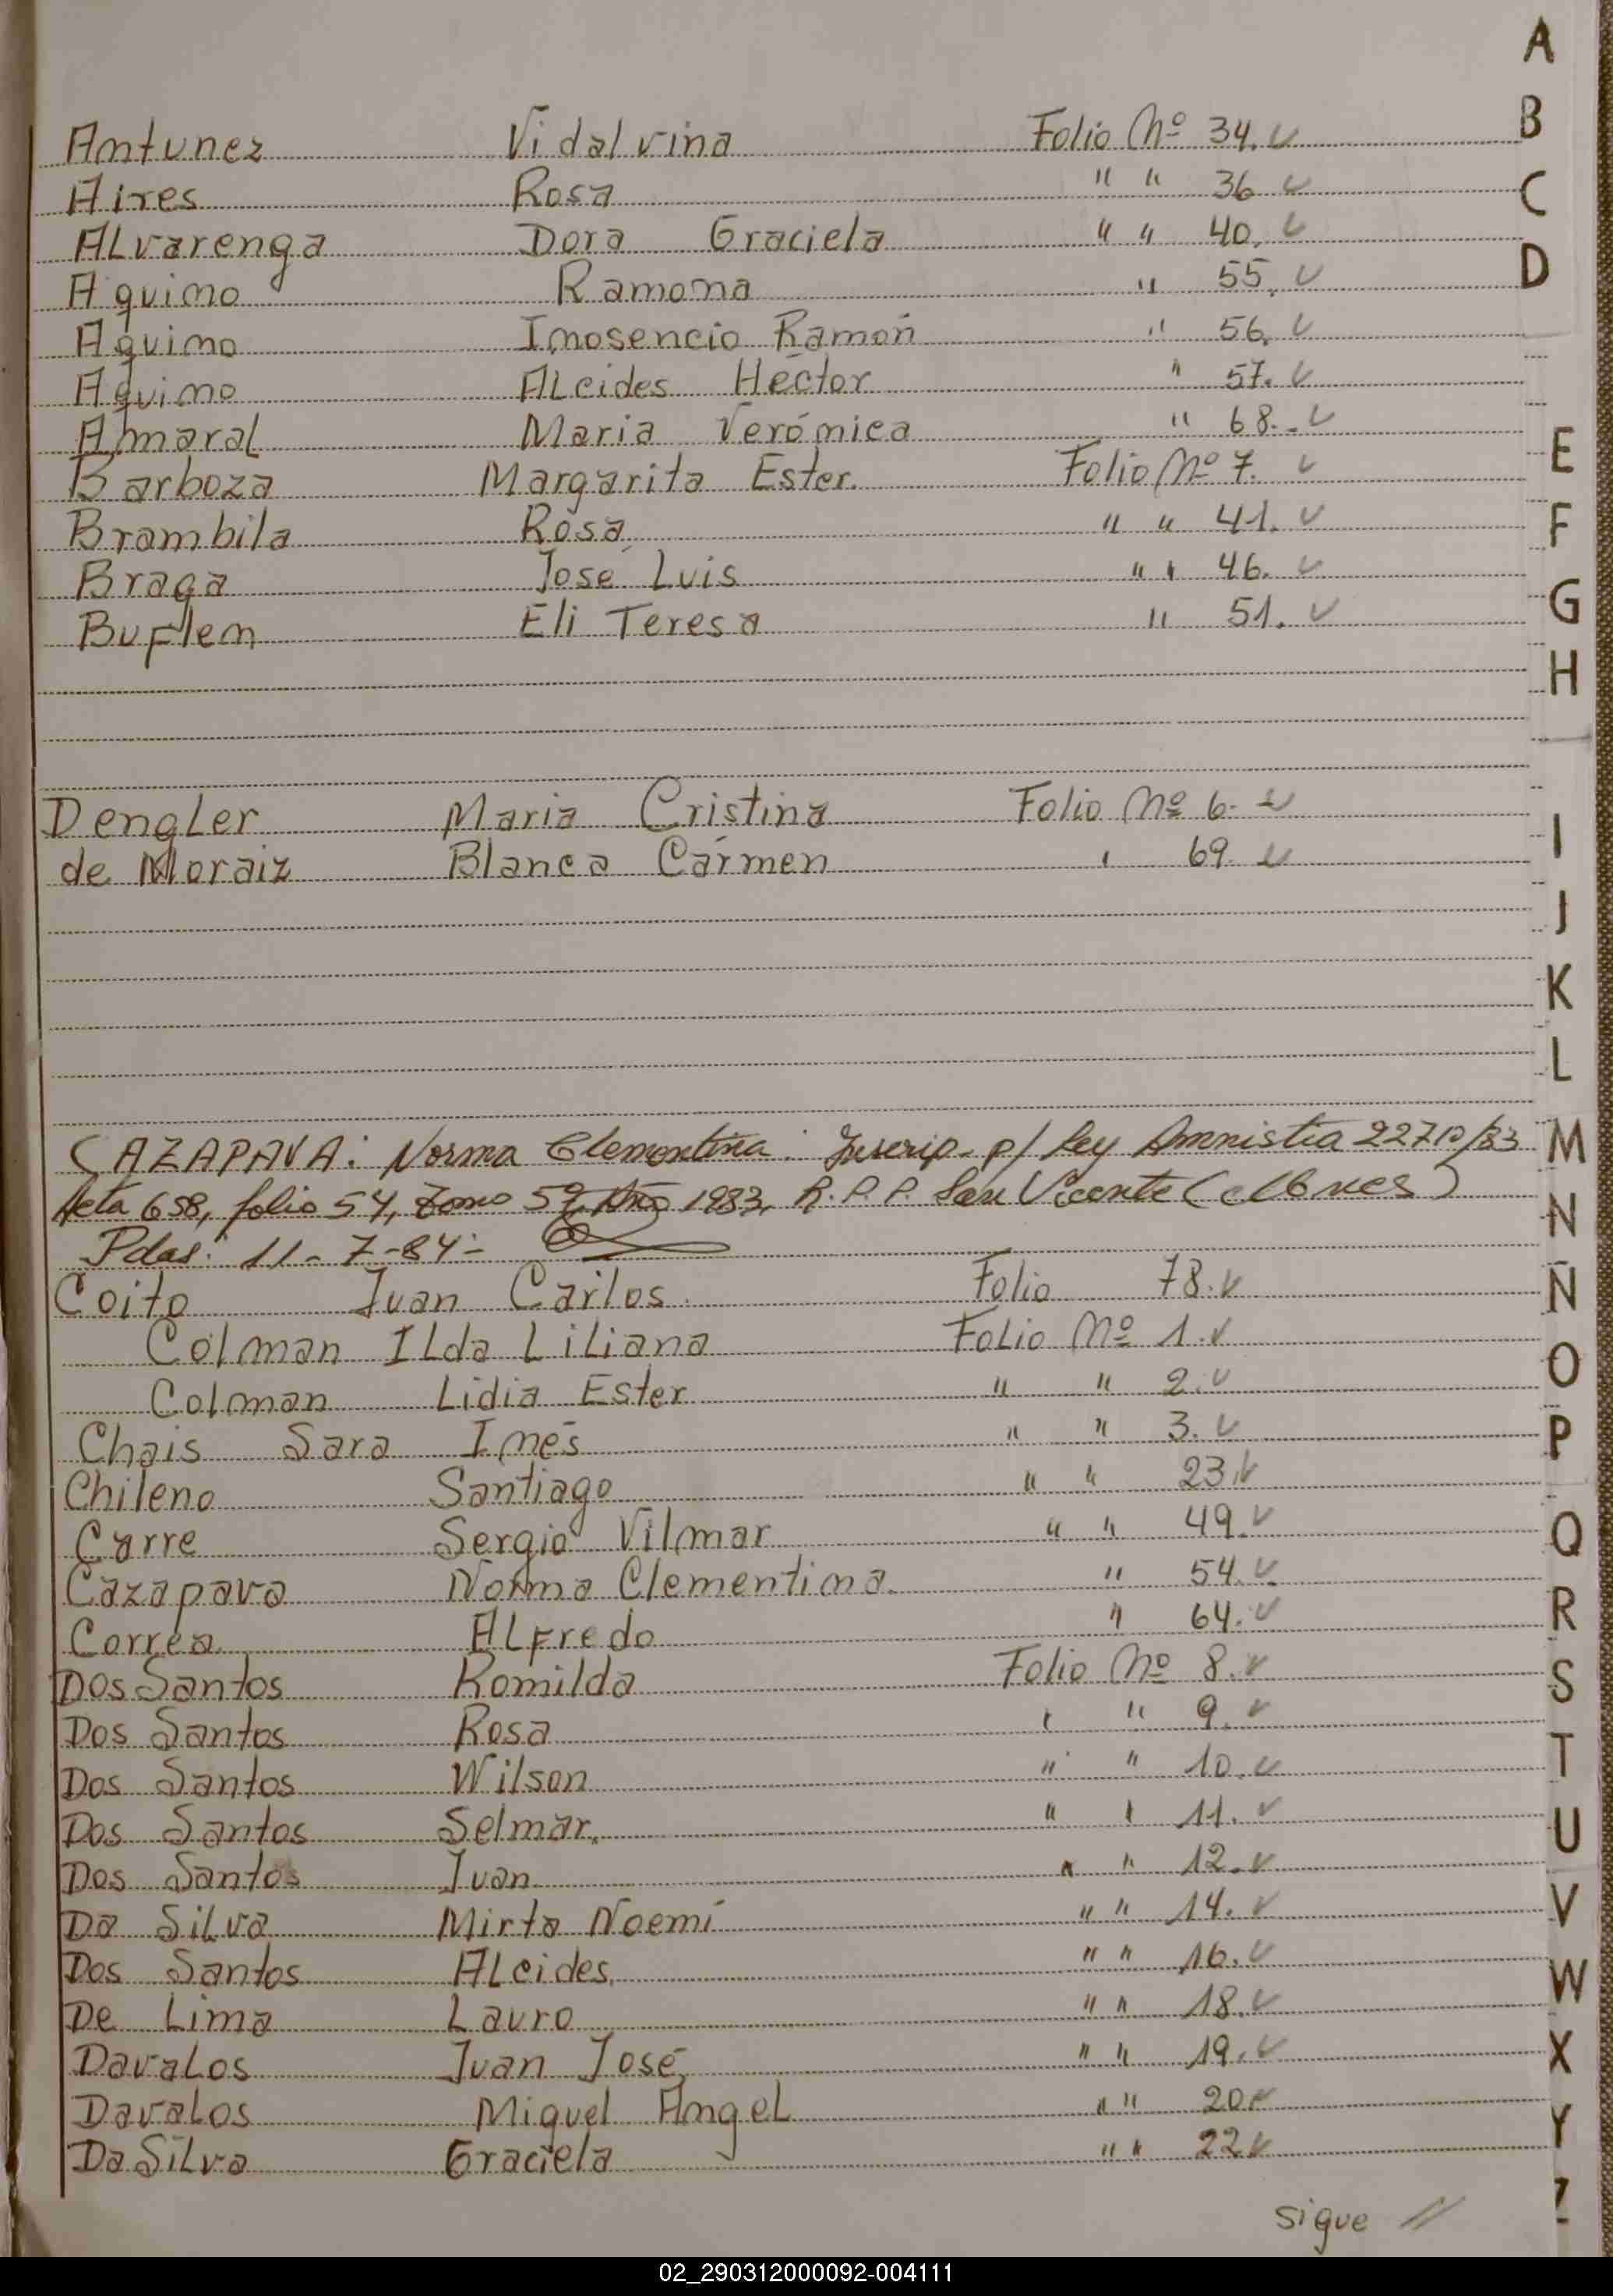 Antunez Vidalvina Folio Nº 34. ✓
Aires Rosa " " 36 ✓
ALvarenga Dora Graciela " " 40. ✓
Aquino Ramona " 55. ✓
Aquino Inosencio Ramón " 56. ✓
Aquino ALcides Héctor " 57. ✓
Amaral Maria Verónica " 68.- ✓
Barboza Margarita Ester. Folio Nº 7. ✓
Brambila Rosa " " 41. ✓
Braga José Luis " " 46. ✓
Buflem Eli Teresa " 51. ✓
DengLer Maria Cristina Folio Nº 6. ✓
de Moraiz Blanca Carmen " 69 ✓
CAZAPAVA: Norma Clementina: Inscrip. p/ Ley Amnistia 22710/83
Acta 658, folio 54, Tomo 5º, Año 1983, R.P.P. San Vicente (Mnes)
Pdas: 11-7-84-
Coito Juan Carlos. Folio 78. ✓
Colman ILda LiLiana FoLio Nº 1. ✓
Colman Lidia Ester " " 2. ✓
Chais Sara Inés " " 3. ✓
Chileno Santiago " " 23. ✓
Curre Sergio Vilmar " " 49. ✓
Cazapava Norma Clementina. " 54. ✓
Correa ALfredo " 64. ✓
Dos Santos Romilda Folio Nº 8. ✓
Dos Santos Rosa " " 9. ✓
Dos Santos Wilson " " 10. ✓
Dos Santos Selmar. " " 11. ✓
Dos Santos Juan " " 12. ✓
Da SiLva Mirta Noemí " " 14. ✓
Dos Santos ALcides. " " 16. ✓
De Lima Lauro " " 18. ✓
DavaLos Juan José " " 19. ✓
DavaLos Miguel AngeL " " 20 ✓
Da SiLva Graciela " " 22 ✓
sigue //
A
B
C
D
E
F
G
H
I
J
K
L
M
N
Ñ
O
P
Q
R
S
T
U
V
W
X
Y
Z
02_290312000092-004111